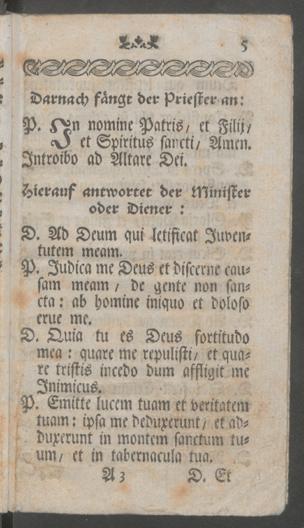 5
Darnach fängt der Priester an:
P. In nomine Patris, et Filij,
et Spiritus sancti, Amen.
Introibo ad Altare Dei.
Hierauf antwortet der Minister
oder Diener:
D. Ad Deum qui letificat Juven-
tutem meam.
P. Judica me Deus et discerne cau-
sam meam, de gente non san-
cta: ab homine iniquo et doloso
erue me.
D. Quia tu es Deus fortitudo
mea: quare me repulisti, et qua-
re tristis incedo dum affligit me
Inimicus.
P. Emitte lucem tuam et veritatem
tuam: ipsa me deduxerunt, et ad-
duxerunt in montem sanctum tu-
um, et in tabernacula tua.
A 3 D. Et